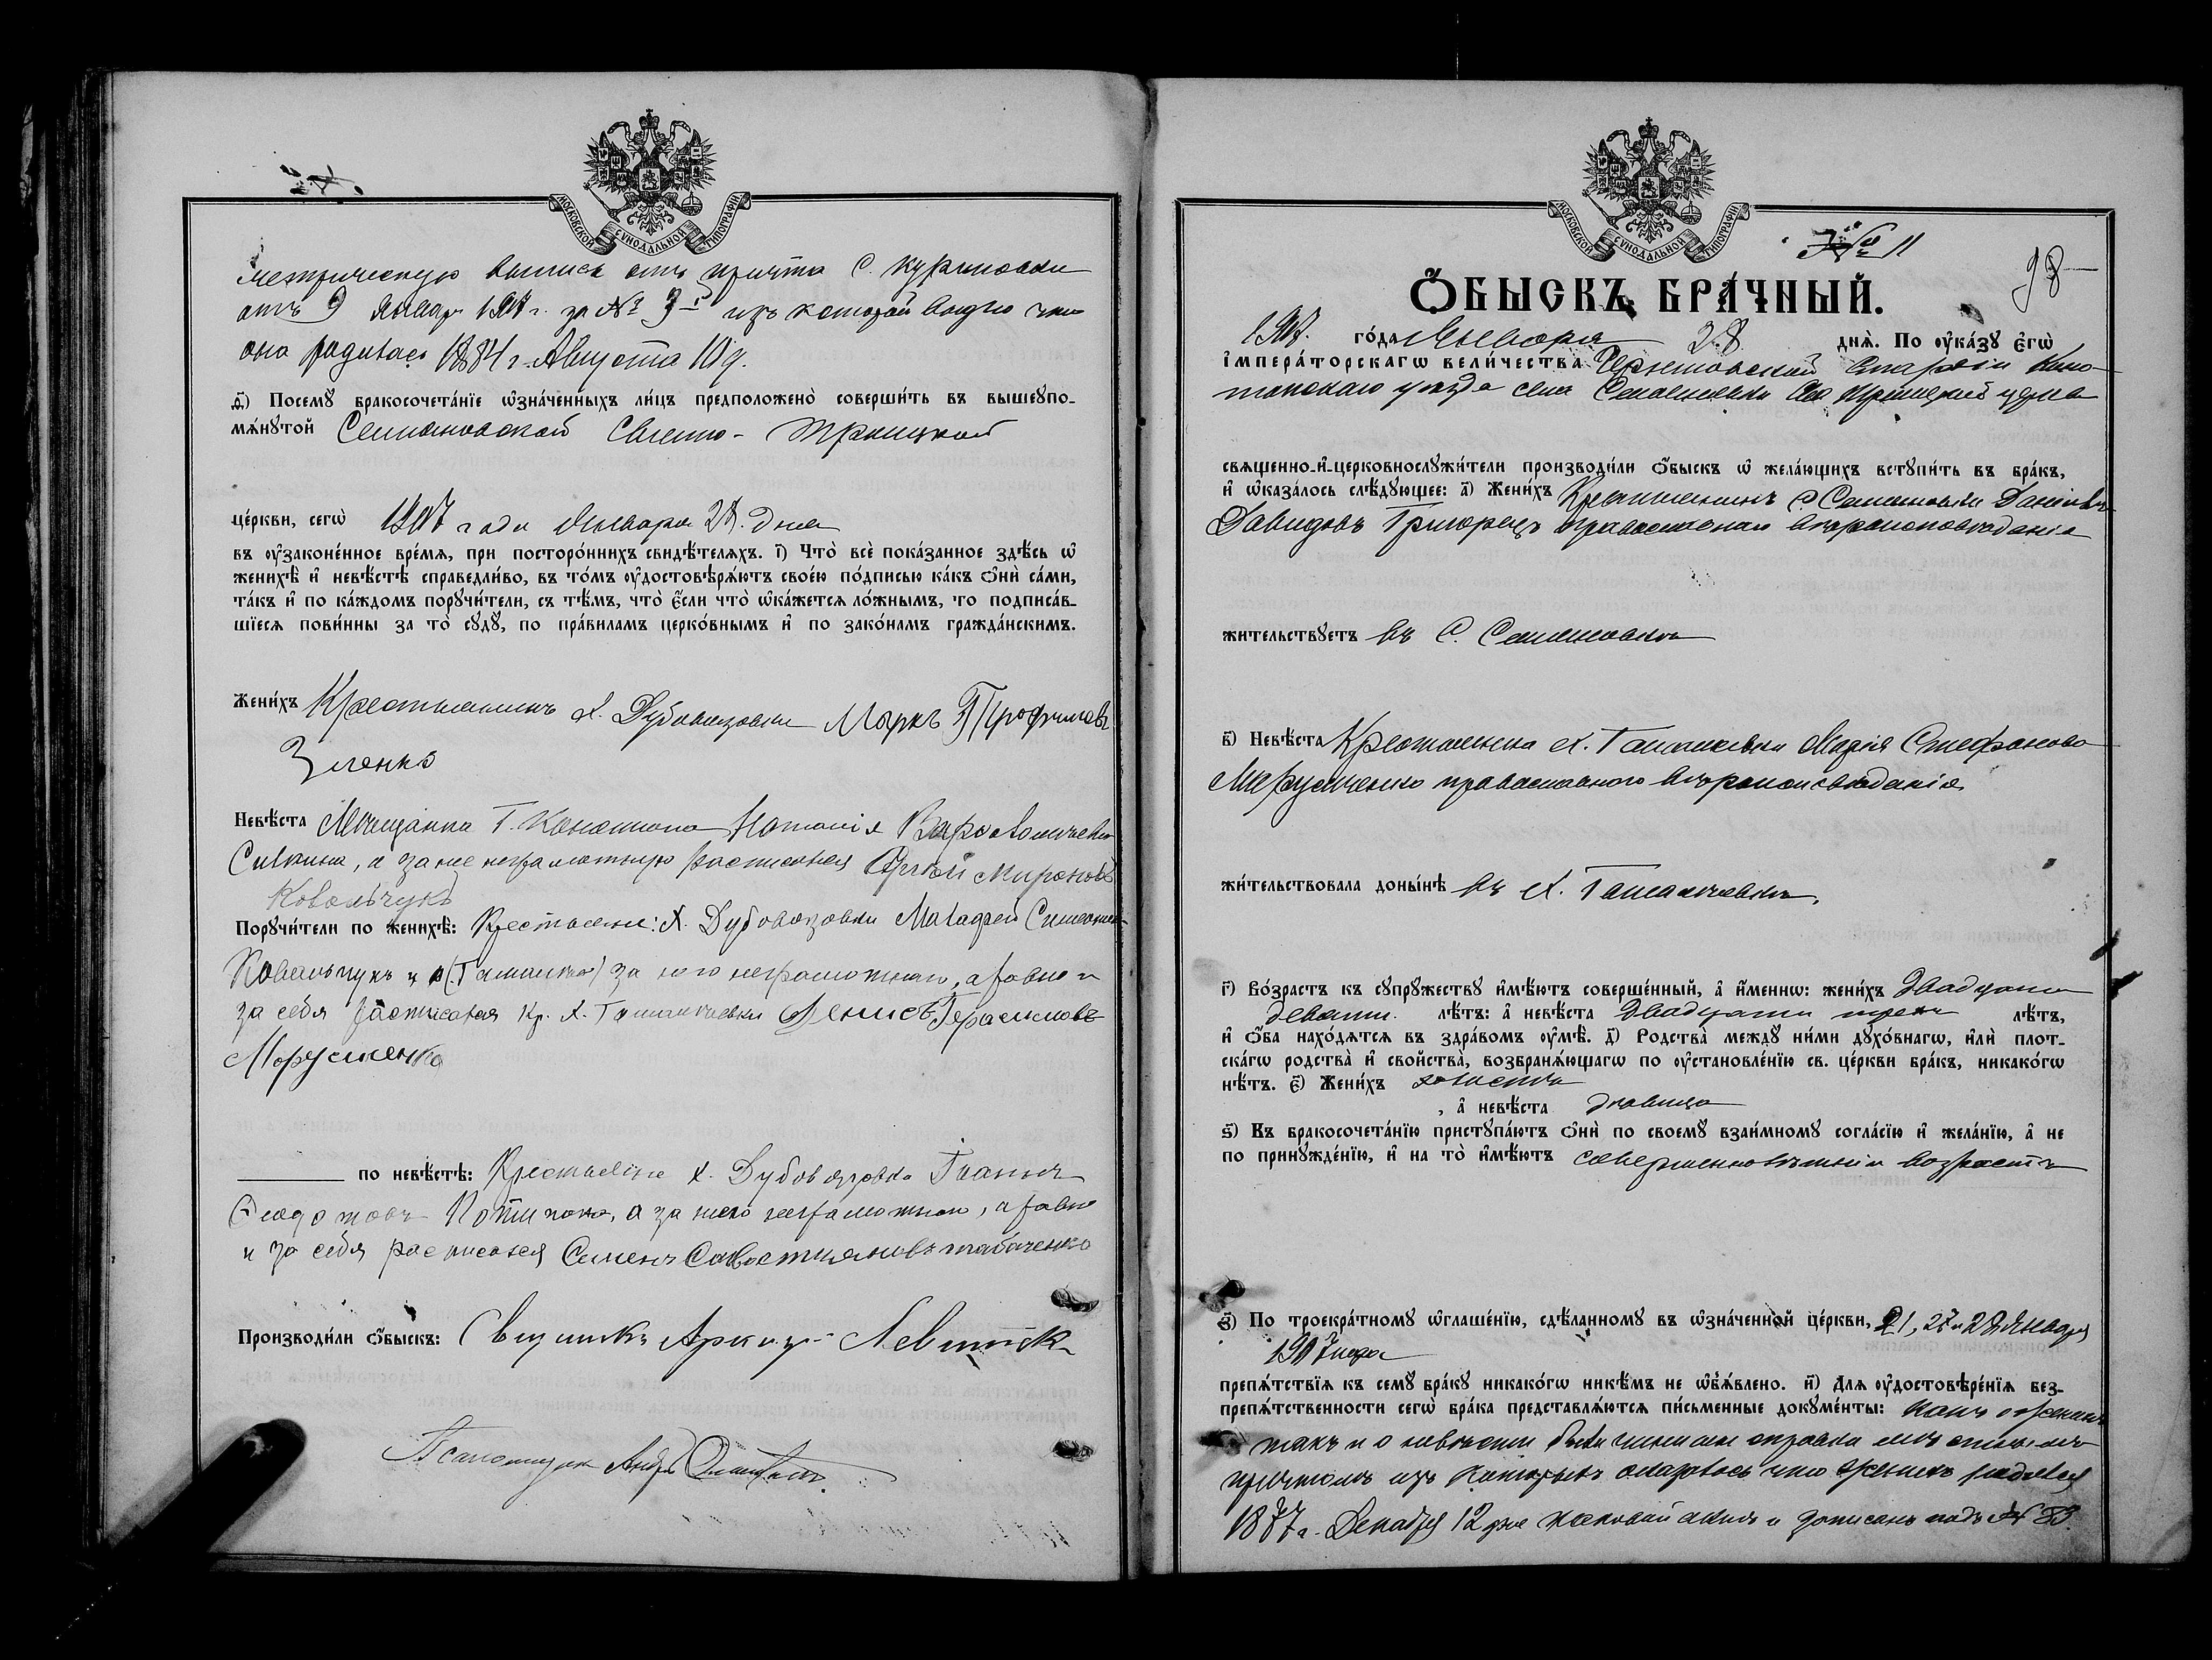 МОСКОВСКОЙ СѴНОДАЛЬНОЙ ТИПОГРАФІИ
метрическую выпись отъ причта с. Куриловки
отъ 9 Января 1907 г. за № 3 изъ которой видно что
она родилась 1884 г. Августа 10 д.
д҃) Посемꙋ бракосочета́нїе ѡ҆зна́ченныхъ ли́цъ предположено̀ соверши́ть въ вышеꙋпо-
мѧ́нꙋтой Семяновской Свято-Троицкой
це́ркви, сегѡ̀ 1907 года Января 28 дня
въ ᲂу҆законе́нное вре́мѧ, при посторо́ннихъ свидѣ́телѧхъ. і҃) Что̀ всѐ пока́занное здѣ́сь ѡ҆
женихѣ̀ и҆ невѣ́стѣ справедли́во, въ то́мъ ᲂу҆достовѣрѧ́ютъ свое́ю по́дписью ка́къ ѻ҆нѝ са́ми,
та́къ и҆ по ка́ждомъ порꙋчи́тели, съ тѣ́мъ, что̀ є҆́сли что̀ ѡ҆ка́жетсѧ ло́жнымъ, то подписа́в-
шїесѧ пови́нны за то̀ сꙋдꙋ̀, по пра́виламъ церко́внымъ и҆ по зако́намъ гражда́нскимъ.
Жени́хъ Крестьянинъ х. Дубовязовки Маркъ Трофимовъ
Зленко
Невѣ́ста Мѣщанка г. Конотопа Наталія Варфоломѣева
а за нее неграмотную росписался Сергѣй Мироновъ
Ковальчукъ
Порꙋчи́тели по женихѣ̀: Крестьяне: х. Дубовязовки Малафей Симеоновъ
Ковальчукъ за него неграмотнаго, а равно и
за себя росписался кр. х. Ташанчевки Денисъ Герасимовъ
Марусченко
по невѣ́стѣ: Крестьяне х. Дубовязовка Іванъ
Феодотовъ а за него неграмотнаго, а равно
и за себя росписался Семенъ Савостьяновъ Табаченко
Производи́ли ѻ҆́быскъ: Священникъ Левитск
Псаломщикъ Андр
МОСКОВСКОЙ СѴНОДАЛЬНОЙ ТИПОГРАФІИ
№ 11
98
ѺБЫСКЪ БРА́ЧНЫЙ.
1907. го́да Января 28 днѧ̀. По ᲂу҆ка́зꙋ є҆гѡ̀
і҆мпера́торскагѡ вели́чества Черниговской Епархіи Коно-
топскаго уѣзда села Семяновки Троицкой церкви
свѧщенно-и҆-церковнослꙋжи́тели производи́ли ѻ҆́быскъ ѡ҆ жела́ющихъ встꙋпи́ть въ бра́къ,
и҆ ѡ҆каза́лось слѣ́дꙋющее: а҃) Жени́хъ Крестьянинъ с. Семяновки Даніилъ
Давидовъ Григорецъ православнаго вѣроисповѣданія
жи́тельствꙋетъ въ с. Семяновкѣ
в҃) Невѣ́ста Крестьянка х. Ташанчевки Марія Стефанова
Марусченко православнаго вѣроисповѣданія
жи́тельствовала доны́нѣ въ х. Ташанчевкѣ.
г҃) Во́зрастъ къ сꙋпрꙋ́жествꙋ и҆мѣ́ютъ соверше́нный, а҆ и҆́меннѡ: жени́хъ двадцати
девяти. лѣ́тъ: а҆ невѣ́ста двадцати трехъ лѣ́тъ,
и҆ ѻ҆́ба нахо́дѧтсѧ въ здра́вомъ ᲂу҆мѣ̀. д҃) Родства̀ междꙋ̀ ни́ми дꙋхо́внагѡ, и҆лѝ плот-
ска́гѡ родства̀ и҆ сво́йства, возбранѧ́ющагѡ по ᲂу҆становле́нїю св. це́ркви бра́къ, никако́гѡ
нѣ́тъ. є҃) Жени́хъ холостъ
, а҆ невѣ́ста дѣвица
ѕ҃) Въ бракосочета́нїю пристꙋпа́ютъ ѻ҆нѝ по своемꙋ̀ взаи́мномꙋ согла́сїю и҆ жела́нїю, а҆ не
по принꙋжде́нїю, и҆ на то̀ и҆мѣ́ютъ совершеннолѣтній возрастъ
з҃) По троекра́тномꙋ ѡ҆глаше́нїю, сдѣ́ланномꙋ въ ѡ҆зна́ченной це́ркви, 21, 25 и 28 Января
1907 года
препѧ́тствїѧ къ семꙋ̀ бра́кꙋ никако́гѡ никѣ́мъ не ѡ҆б̾ѧ́влено. и҃) Длѧ ᲂу҆достовѣре́нїѧ без-
препѧ́тственности сегѡ̀ бра́ка представлѧ́ютсѧ пи́сьменные докꙋме́нты: какъ о женихѣ
такъ и о невѣстѣ были справки
причтомъ изъ которыхъ оказалось что женихъ родился
1877 г. Декабря 12 дня каковый актъ и записанъ подъ № 83.